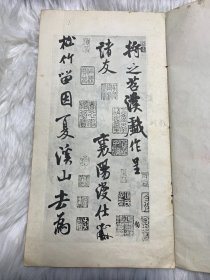 將之苕溪戲作呈
諸友
襄陽漫仕黻
松竹留因夏溪山去為